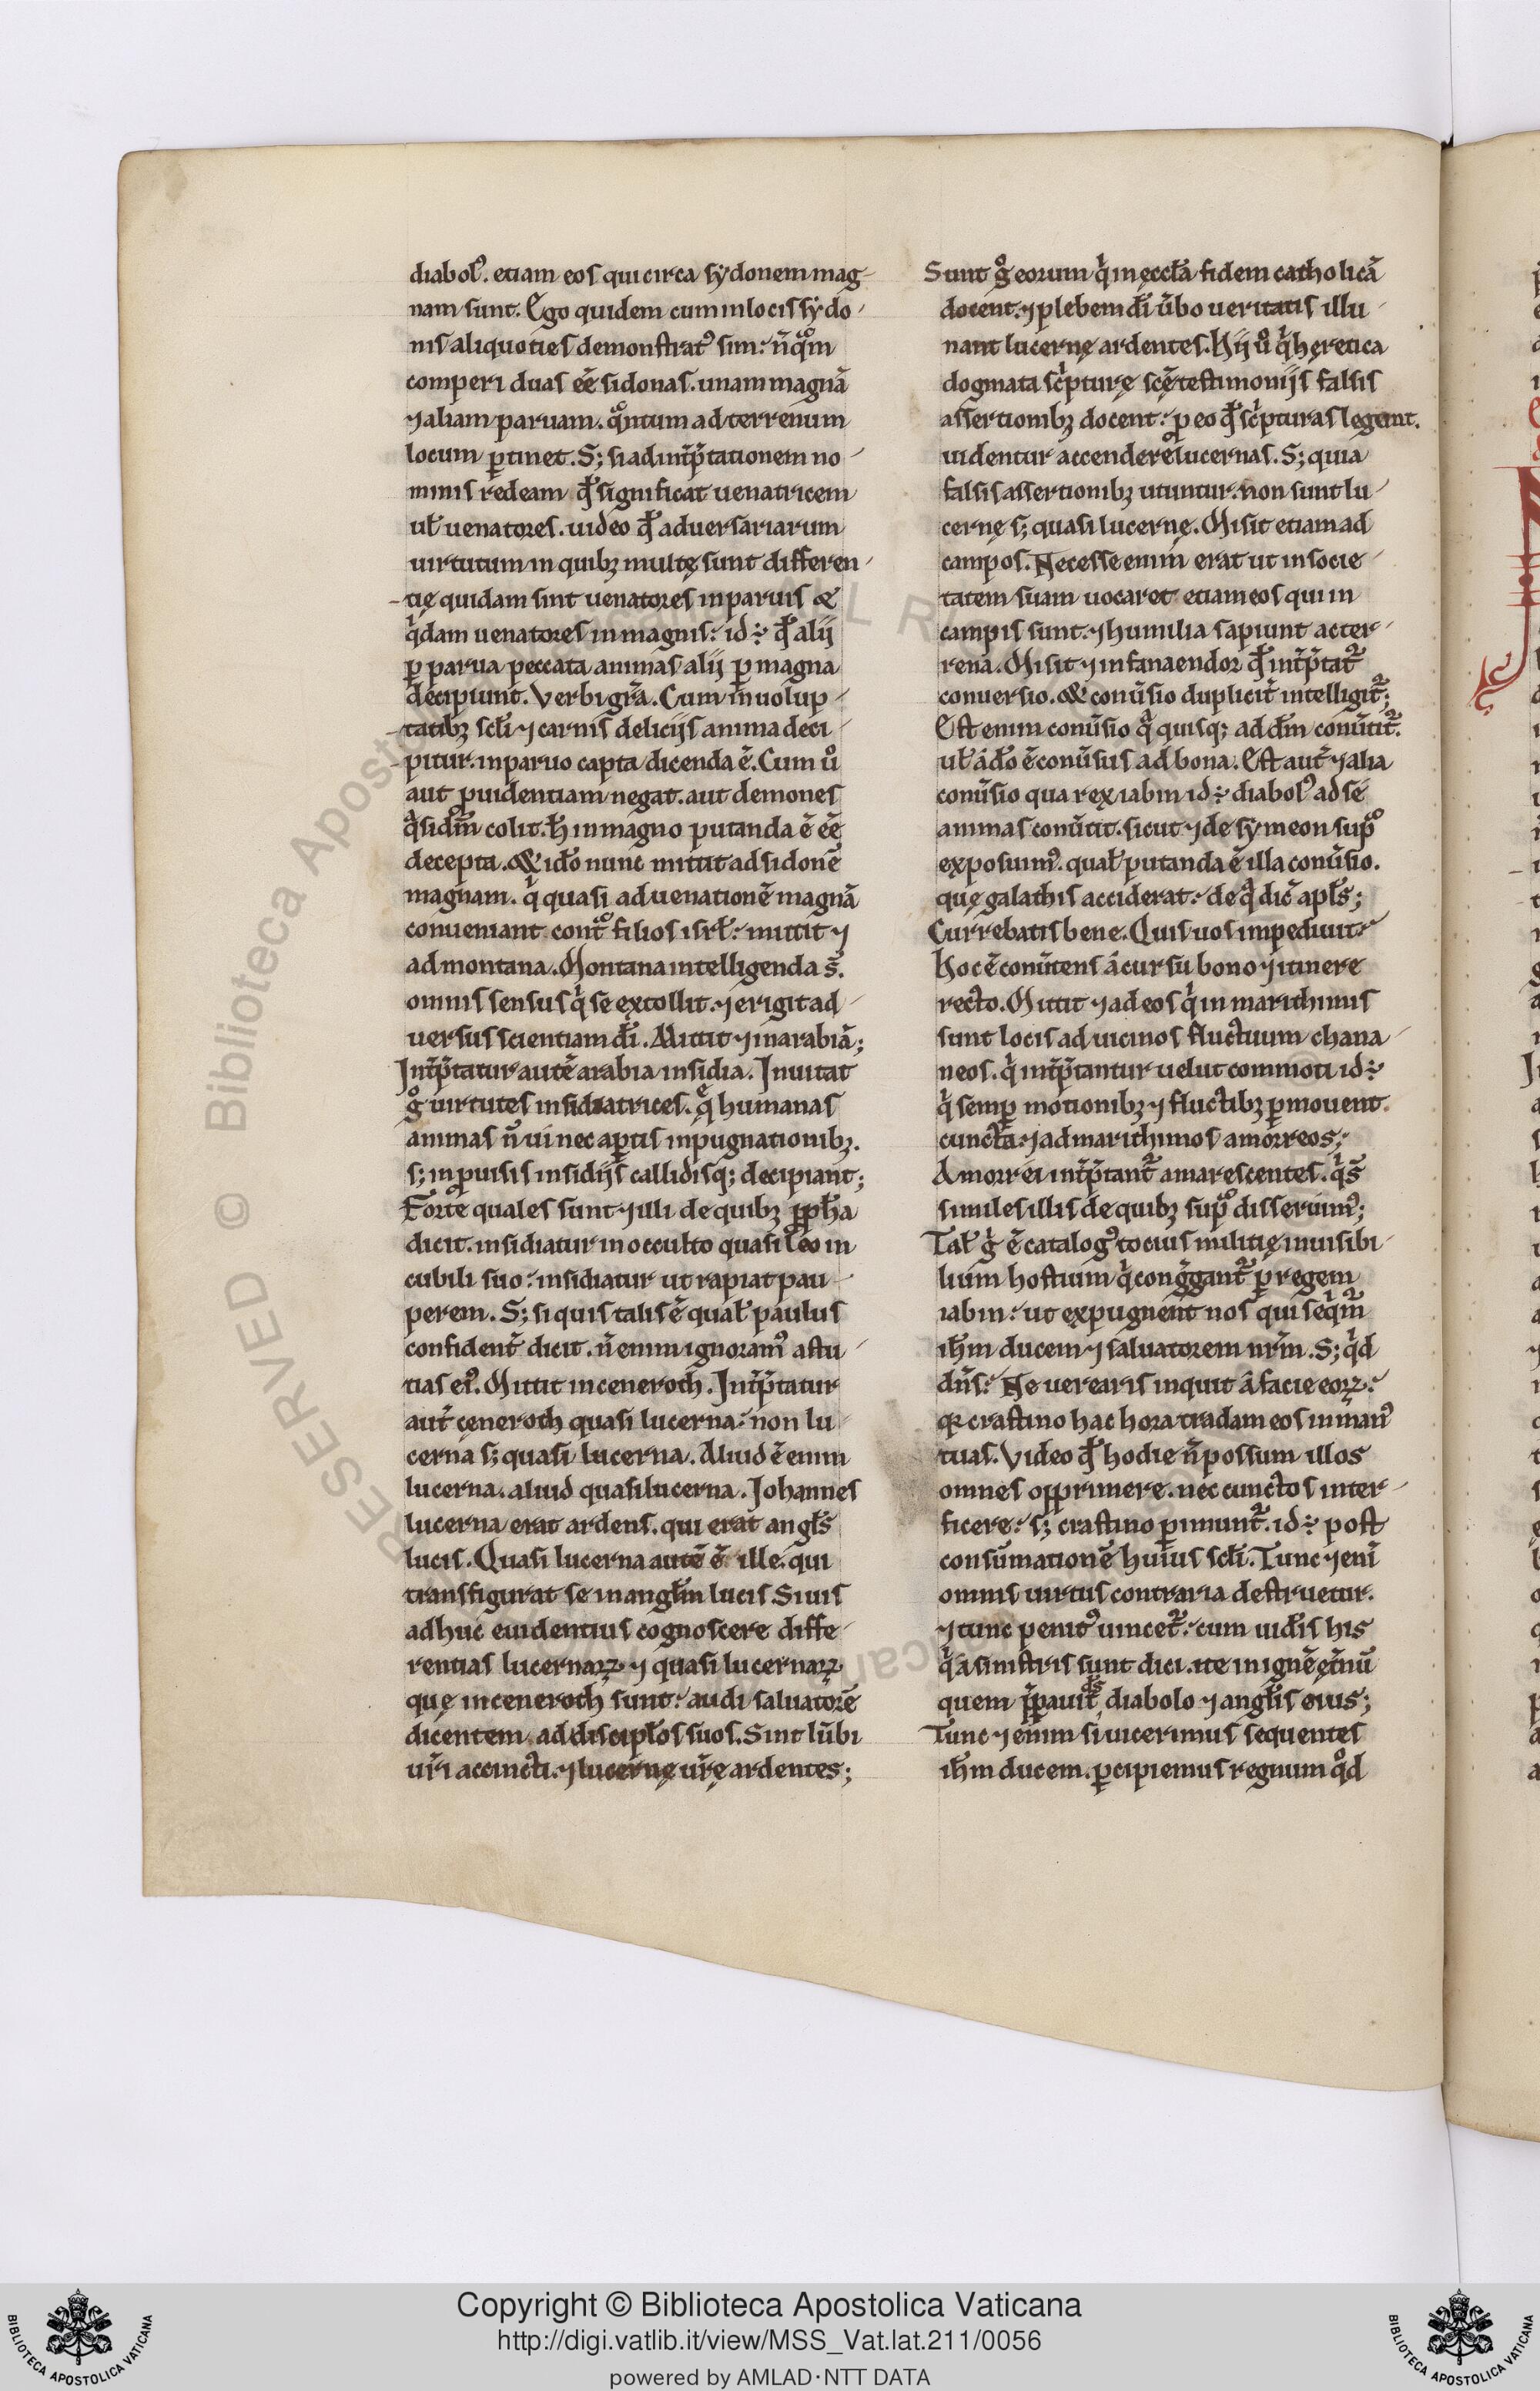 diabolꝰ. etiam eos qui circa sydonem mag-
nam sunt. Ego quidem cum in locis sydo-
nis aliquoties demonstratꝰ sim: nūqͦm
comperi duas eē sidonas. unam magnā
⁊ aliam paruam. qͦntum ad terrenum
locum ꝑtinet. S; si ad int̄p̄tationem no-
minis redeam qđ significat uenatricem
uł uenatores. uideo qđ aduersariarum
uirtutum in quibꝫ multę sunt differen-
tię quidam sint uenatores in paruis &
qͥdam uenatores in magnis: id÷ qđ alij
ꝑ parua peccata animas alij ꝑ magna
decipiunt. Verbi gr̄a. Cum in uolup-
tatibꝫ scłi ⁊ carnis delicijs anima deci-
pitur. in paruo capta dicenda ē. Cum uͦ
aut ꝓuidentiam negat. aut demones
qͣsi dm̄ colit. h̄ in magno putanda ē eē
decepta. & iđo nunc mittit ad sidonē
magnam. qͥ quasi ad uenationē magnā
conueniant contͦ filios isrł: mittit ⁊
ad montana. Montana intelligenda s̄.
omnis sensus qͥ se extollit. ⁊ erigit ad-
uersus scientiam dī. Mittit ⁊ in arabiā;
Int̄p̄tatur autē arabia insidia. Inuitat
gͦ uirtutes insidiatrices. qͤ humanas
animas n̄ ui nec aꝑtis inpugnationibꝫ.
s; inꝓuisis insidijs callidisq; decipiant;
Forte quales sunt ⁊ illi de quibꝫ ꝓph̄a
dicit. insidiatur in occulto quasi leo in
cubili suo: insidiatur ut rapiat pau-
perem. S; si quis talis ē quał paulus
confident̄ dicit. n̄ enim ignoramꝰ astu-
tias eiꝰ. Mittit in ceneroth. Int̄p̄tatur
aut̄ ceneroth quasi lucerna: non lu-
cerna s; quasi lucerna. Aliud ē enim
lucerna. aliud quasi lucerna. Johannes
lucerna erat ardens. qui erat angłs
lucis. Quasi lucerna autē ē ille. qui
transfigurat se in angłm lucis Si uis
adhuc euidentius cognoscere diffe-
rentias lucernaꝝ ⁊ quasi lucernaꝝ
quę in ceneroth sunt: audi saluatorē
dicentem ad discipłos suos. Sint lūbi
ur̄i accincti. ⁊ lucernę ur̄ę ardentes;
Sunt gͦ eorum qͥ in ęccła fidem catholicā
docent. ⁊ plebem dī ūbo ueritatis illu-
nant lucernę ardentes. Hij uͦ qͥ hęretica
dogmata scͥpturę scę̄ testimonijs falsis
assertionibꝫ docent: ꝓ eo qđ scͥpturas legunt.
uidentur accendere lucernas. S; quia
falsis assertionibꝫ utuntur. non sunt lu-
cernę s; quasi lucernę. Misit etiam ad
campos. Necesse enim erat ut in socie-
tatem suam uocaret etiam eos qui in
campis sunt. ⁊ humilia sapiunt ac ter-
rena. Misit ⁊ in fanaendor qđ int̄p̄tat᷑
conuersio. & conūsio duplicit̄ intelligit᷑;
Est enim conūsio qͣ quisq; ad dm̄ conūtit᷑.
uł a dō ē conūsus ad bona. Est aut̄ ⁊ alia
conūsio qua rex iabin id÷ diabolꝰ ad se
animas conūtit. sicut ⁊ de symeon supͦ
exposuimꝰ. quał putanda ē illa conūsio.
quę galathis acciderat: de qͣ dic̄ apłs;
Currebatis bene. Quis uos impediuit?
Hoc ē conūtens a cursu bono ⁊ itinere
recto. Mittit ⁊ ad eos qͥ in marithimis
sunt locis ad uicinos fluctuum chana-
neos. qͥ int̄p̄tantur uelut commoti id÷
qͥ semꝑ motionibꝫ ⁊ fluctibꝫ ꝑmouent
cuncta: ⁊ ad marithimos amorreos;
Amorrei int̄p̄tant᷑ amarescentes. qͥ s̄
similes illis de quibꝫ supͦ disseruimꝰ;
Tał gͥ ē catalogꝰ tocius militię inuisibi-
lium hostium qͥ congͣgant᷑ ꝑ regem
iabin: ut expugnent nos qui seqͥm᷑
ih̄m ducem ⁊ saluatorem nr̄m. S; qͥd
dn̄s: Ne uerearis inquit a facie eoꝝ:
qꝛ crastino hac hora tradam eos in manꝰ
tuas. Video qđ hodie n̄ possum illos
omnes opprimere. nec cunctos inter-
ficere: s; crastino ꝑimunt᷑. id÷ post
consūmationē huius scłi. Tunc ⁊ eni
omnis uirtus contraria destruetur.
⁊ tunc penitꝰ uincet᷑: cum uidis his
qͥ a sinistris sunt dici. ite in ignē ęt̄nū
quem p̄parauit ds̄ diabolo ⁊ angłis eius;
Tunc ⁊ enim si uicerimus sequentes
ih̄m ducem. ꝑcipiemus regnum qͦd
Copyright © Biblioteca Apostolica Vaticana
http://digi.vatlib.it/view/MSS_Vat.lat.211/0056
powered by AMLAD·NTT DATA
BIBLIOTECA APOSTOLICA VATICANA
BIBLIOTECA APOSTOLICA VATICANA